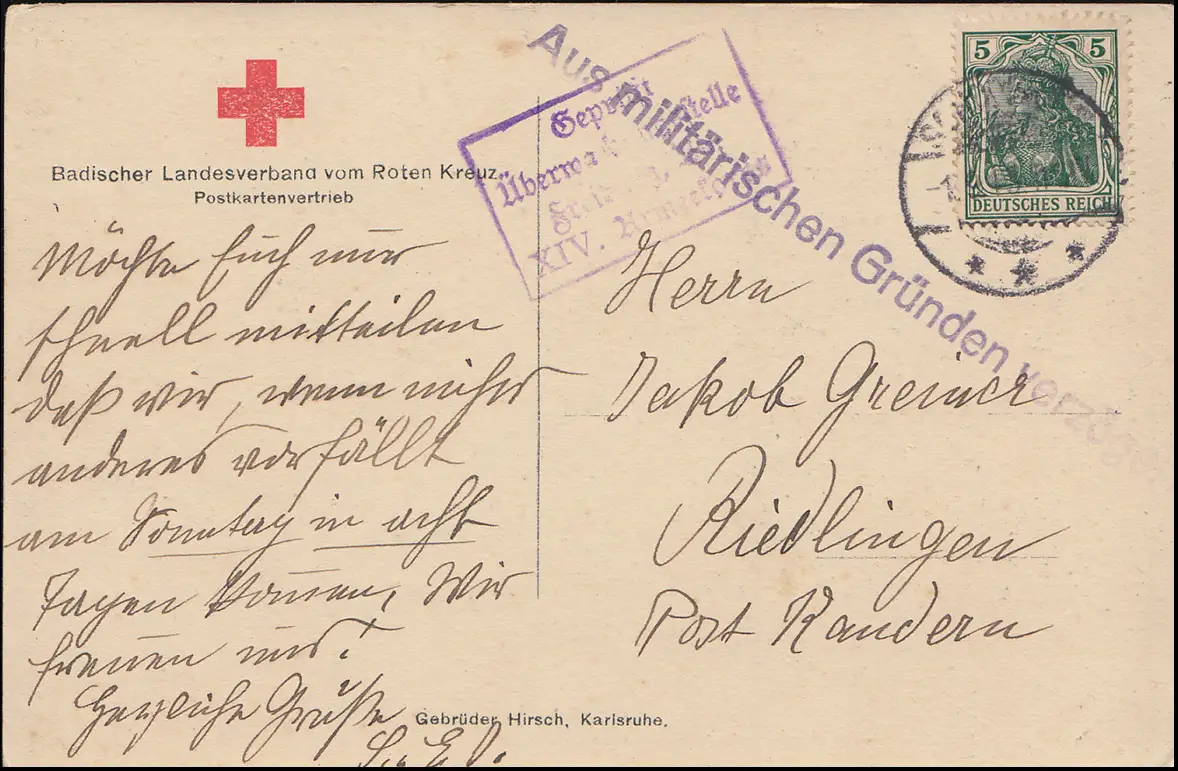 Badischer Landesverband vom Roten Kreuz.
Postkartenvertrieb
Möchte Euch nur
schnell mitteilen
daß wir, wenn nichts
anderes vorfällt
am Sonntag in acht
Tagen kommen. Wir
freuen uns!
Herzliche Grüße
Aus militärischen Gründen verzöge
Geprüft
Überwa stelle
XIV. Armeeko
5 5
DEUTSCHES REICH
Herrn
Jakob Greiner
Riedlingen
Post Kandern
Gebrüder Hirsch, Karlsruhe.